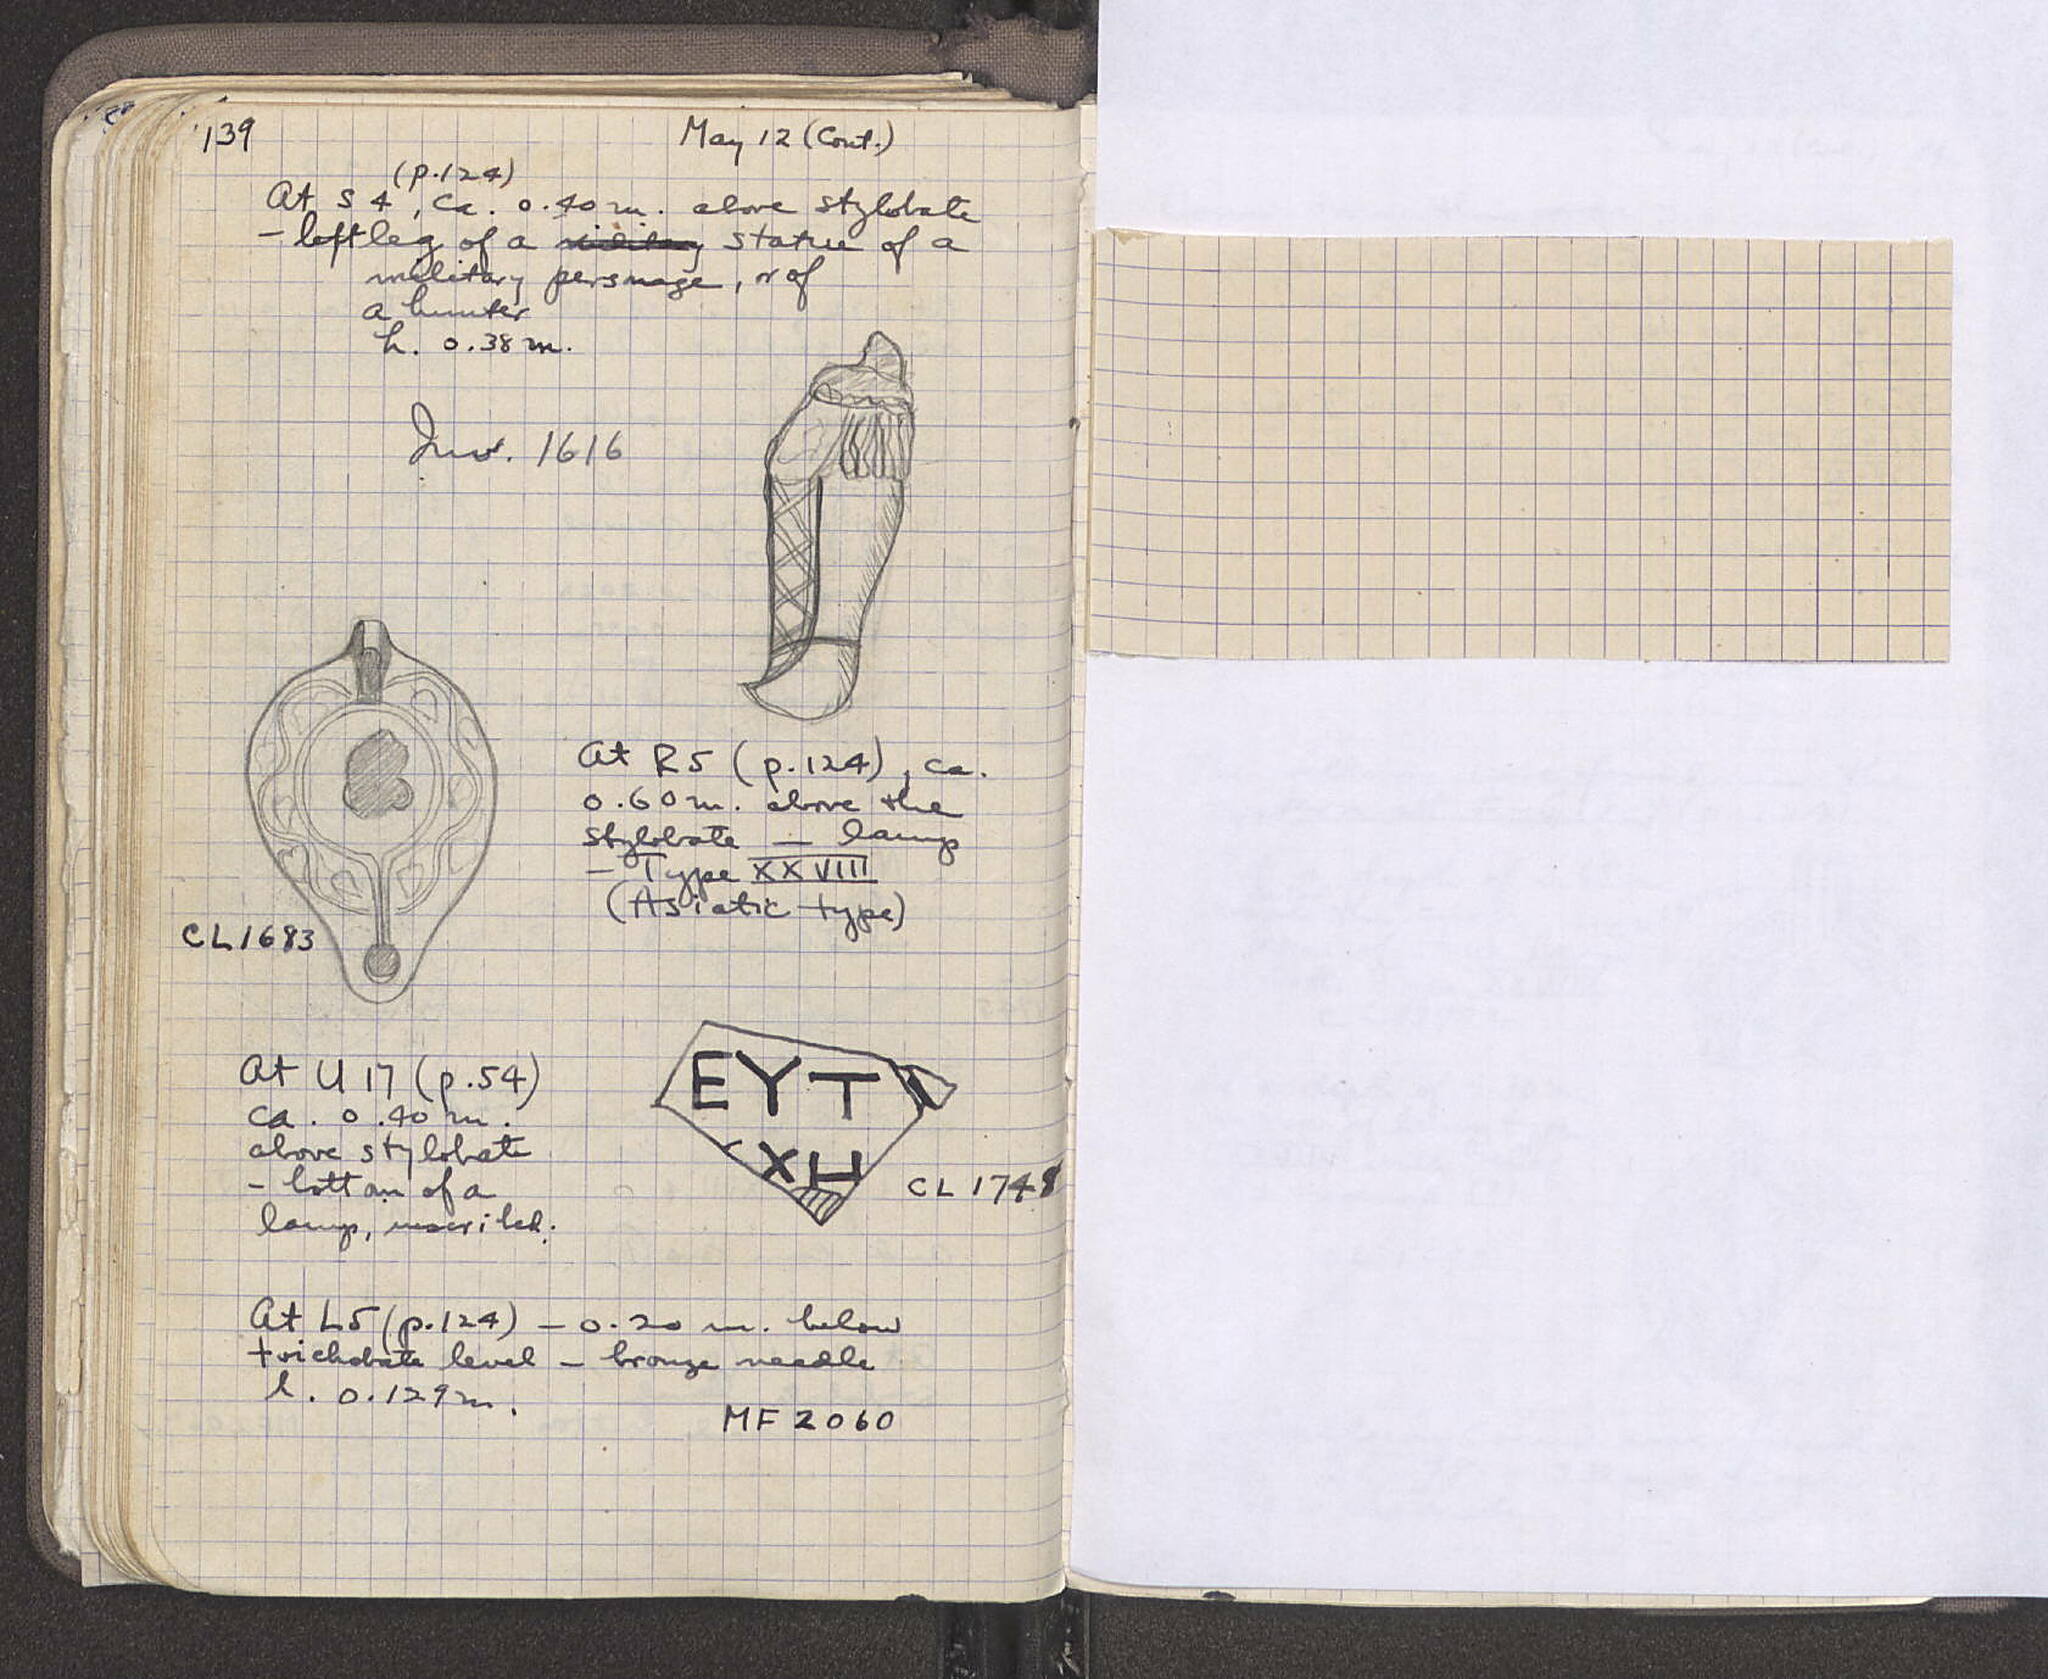 139
May 12 (Cont.)
(p.124)
At S 4, ca. 0.40 m. above stylobate
- left leg of a military statue of a
military personage, or of
a hunter
h. 0.38 m.
Inv. 1616
At R5 (p.124), ca.
0.60 m. above the
stylobate — lamp
- Type XXVIII
(Asiatic type)
CL 1683
At U 17 (p.54)
ca. 0.40 m.
above stylobate
- bottom of a
lamp, inscribed.
EYT
XH
CL 1748
At L5 (p.124) - 0.20 m. below
toichobate level - bronze needle
l. 0.129 m.
MF 2060